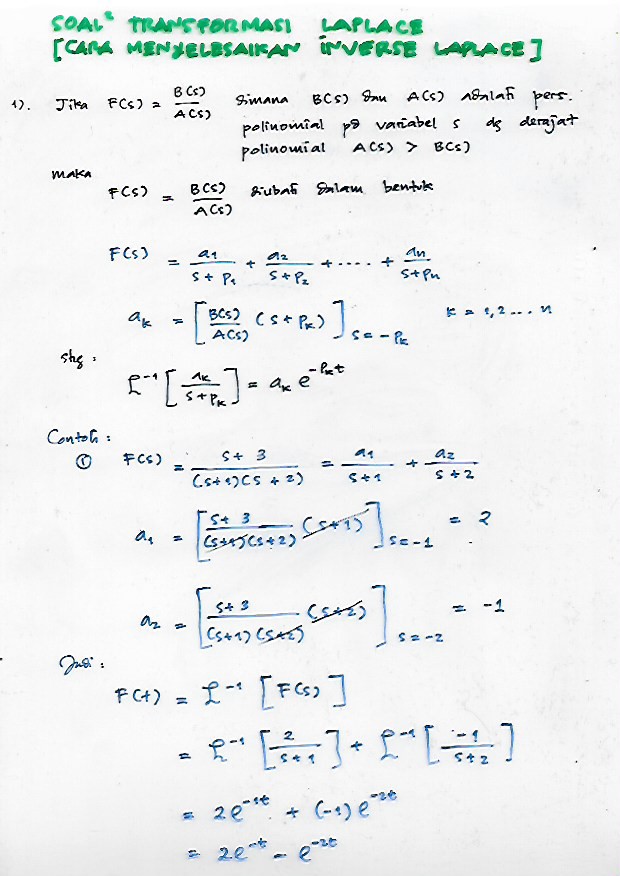 SOAL² TRANSFORMASI LAPLACE
[CARA MENYELESAIKAN INVERSE LAPLACE]
1). Jika F(s) = B(s)/A(s) dimana B(s) dan A(s) adalah pers.
polinomial pd variabel s dg derajat
polinomial A(s) > B(s)
maka
F(s) = B(s)/A(s) diubah dalam bentuk
F(s) = a1/(s+p1) + a2/(s+p2) + .... + an/(s+pn)
ak = [B(s)/A(s) (s+pk)] s=-pk k = 1,2 ... n
shg :
ℒ⁻¹[ak/(s+pk)] = ak e^(-pkt)
Contoh :
① F(s) = (s+3)/((s+1)(s+2)) = a1/(s+1) + a2/(s+2)
a1 = [(s+3)/((s+1)(s+2)) (s+1)] s=-1 = 2
a2 = [(s+3)/((s+1)(s+2)) (s+2)] s=-2 = -1
Jadi :
F(t) = ℒ⁻¹[F(s)]
= ℒ⁻¹[2/(s+1)] + ℒ⁻¹[-1/(s+2)]
= 2e^(-1t) + (-1)e^(-2t)
= 2e^(-t) - e^(-2t)